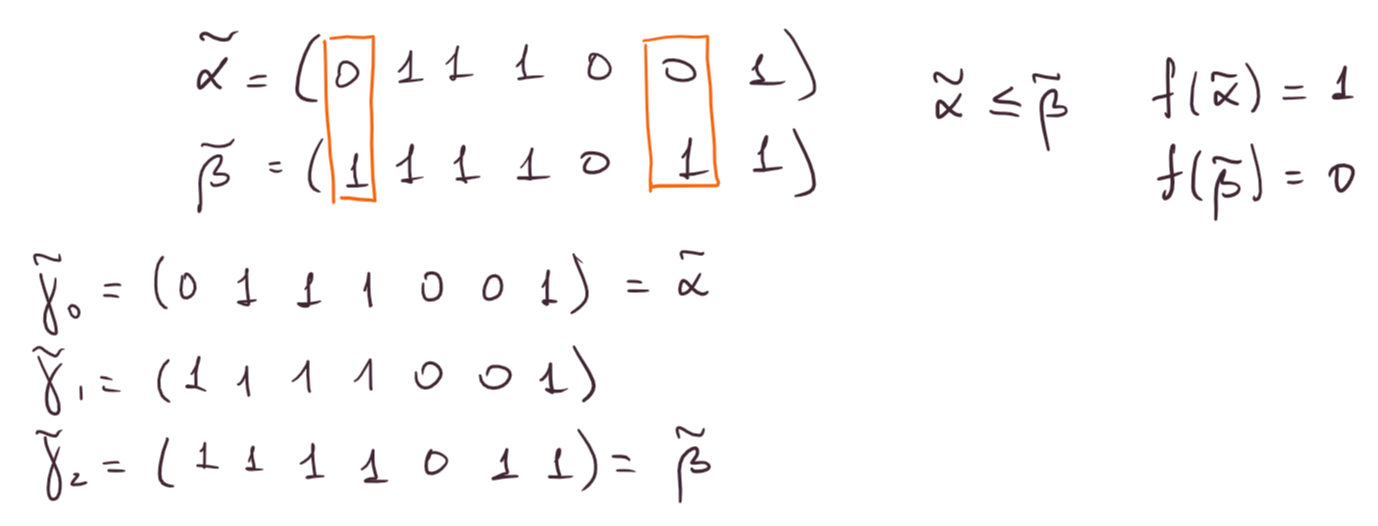 α̃ = (0 1 1 1 0 0 1) α̃ ≤ β̃ f(α̃) = 1
β̃ = (1 1 1 1 0 1 1) f(β̃) = 0
γ̃₀ = (0 1 1 1 0 0 1) = α̃
γ̃₁ = (1 1 1 1 0 0 1)
γ̃₂ = (1 1 1 1 0 1 1) = β̃